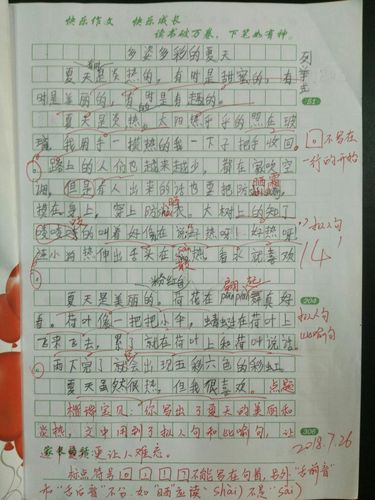 快乐作文 快乐成长
读书破万卷，下笔如有神。
多姿多彩的夏天
夏天是炎热的。有时是甜蜜的，有
时是美丽的。有时是有趣的。
夏天是炎热，太阳热乎乎的照在玻
璃，我用手一摸热的我一下子把手收回
。路上的人们也越来越少，都在家吹空
调，但是有人出来的话也要把防晒霜
擦在身上，穿上防晒衣。大树上的知了
吱吱吱的叫着好像在说好热呀！好热呀
。小狗热伸出舌头在散热。看来就喜欢
夏天是美丽的，荷花在 舞真好
看。荷叶像一把把小伞，蜻蜓在荷叶上
飞来飞去，累了就在荷叶上和荷叶说话
。雨下完了就会出现五彩六色的彩虹。
夏天虽然很热，但我很喜欢。
151
204
306
。不写在
一行的开始
拟人句
14'
粉红色
翩 起
拟人句
比喻句
点题
楷瑞宝贝：你写出了夏天的美丽和
炎热，文中用到了拟人句和比喻句，让
家长更让人难忘。
2018.7.26
标点符号 。 ， ！ ？ 不能写在句首，另外"舌前音"
和"舌后音"不分，如"晒"应读 shài 不念"sài"